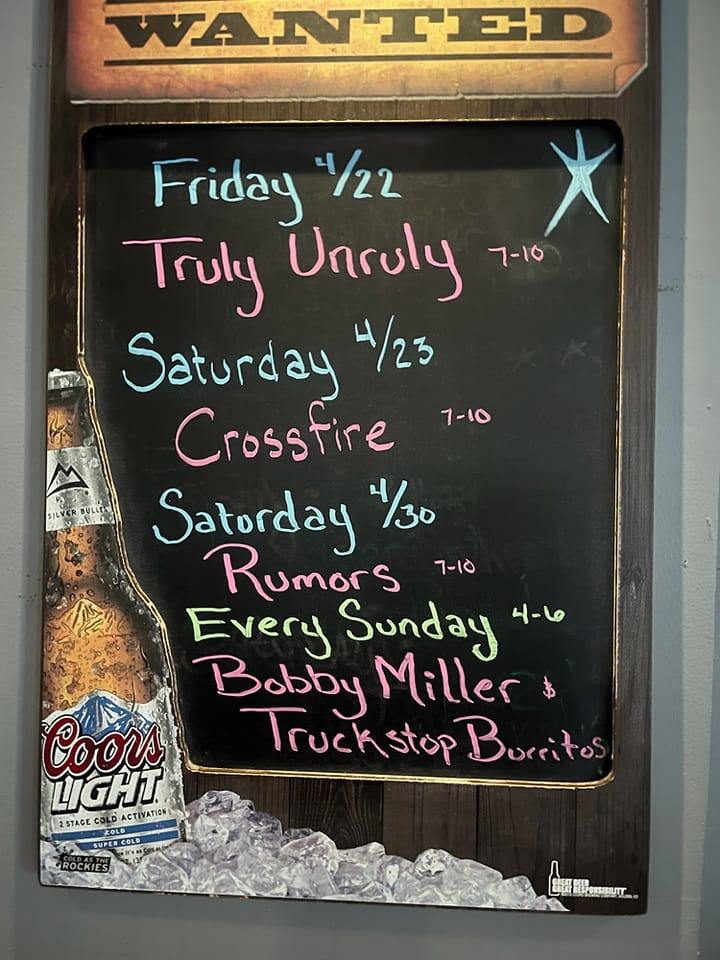 WANTED
Friday 4/22
Truly Unruly 7-10
Saturday 4/23
Crossfire 7-10
Saturday 4/30
Rumors 7-10
Every Sunday 4-6
Bobby Miller &
Truckstop Burritos
SILVER BULLET
Coors
LIGHT
2 STAGE COLD ACTIVATION
COLD
SUPER COLD
COLD AS THE
ROCKIES
GREAT BEER
GREAT RESPONSIBILITY